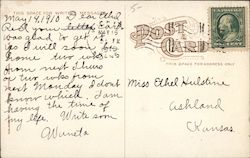 THIS SPACE FOR WRITING MESSAGES
POST CARD
THIS SPACE FOR ADDRESS ONLY
May 14, 1910 Dear Ethel
Recd your letter
was glad to get it
as I will soon be
home two wks
from next Thurs
or two wks from
next Monday I dont
know which I am
having the time of
my life. Write soon
Waneta
Miss Ethel Hulstine
Ashland
Kansas.